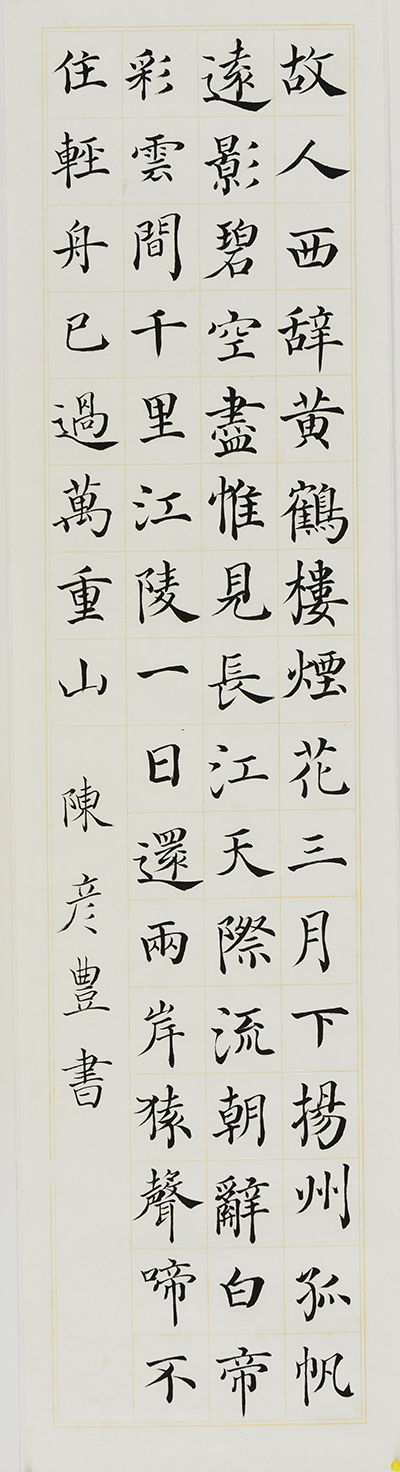 故人西辞黄鶴樓煙花三月下揚州孤帆
遠影碧空盡惟見長江天際流朝辭白帝
彩雲間千里江陵一日還兩岸猿聲啼不
住輕舟已過萬重山
陳彦豊書